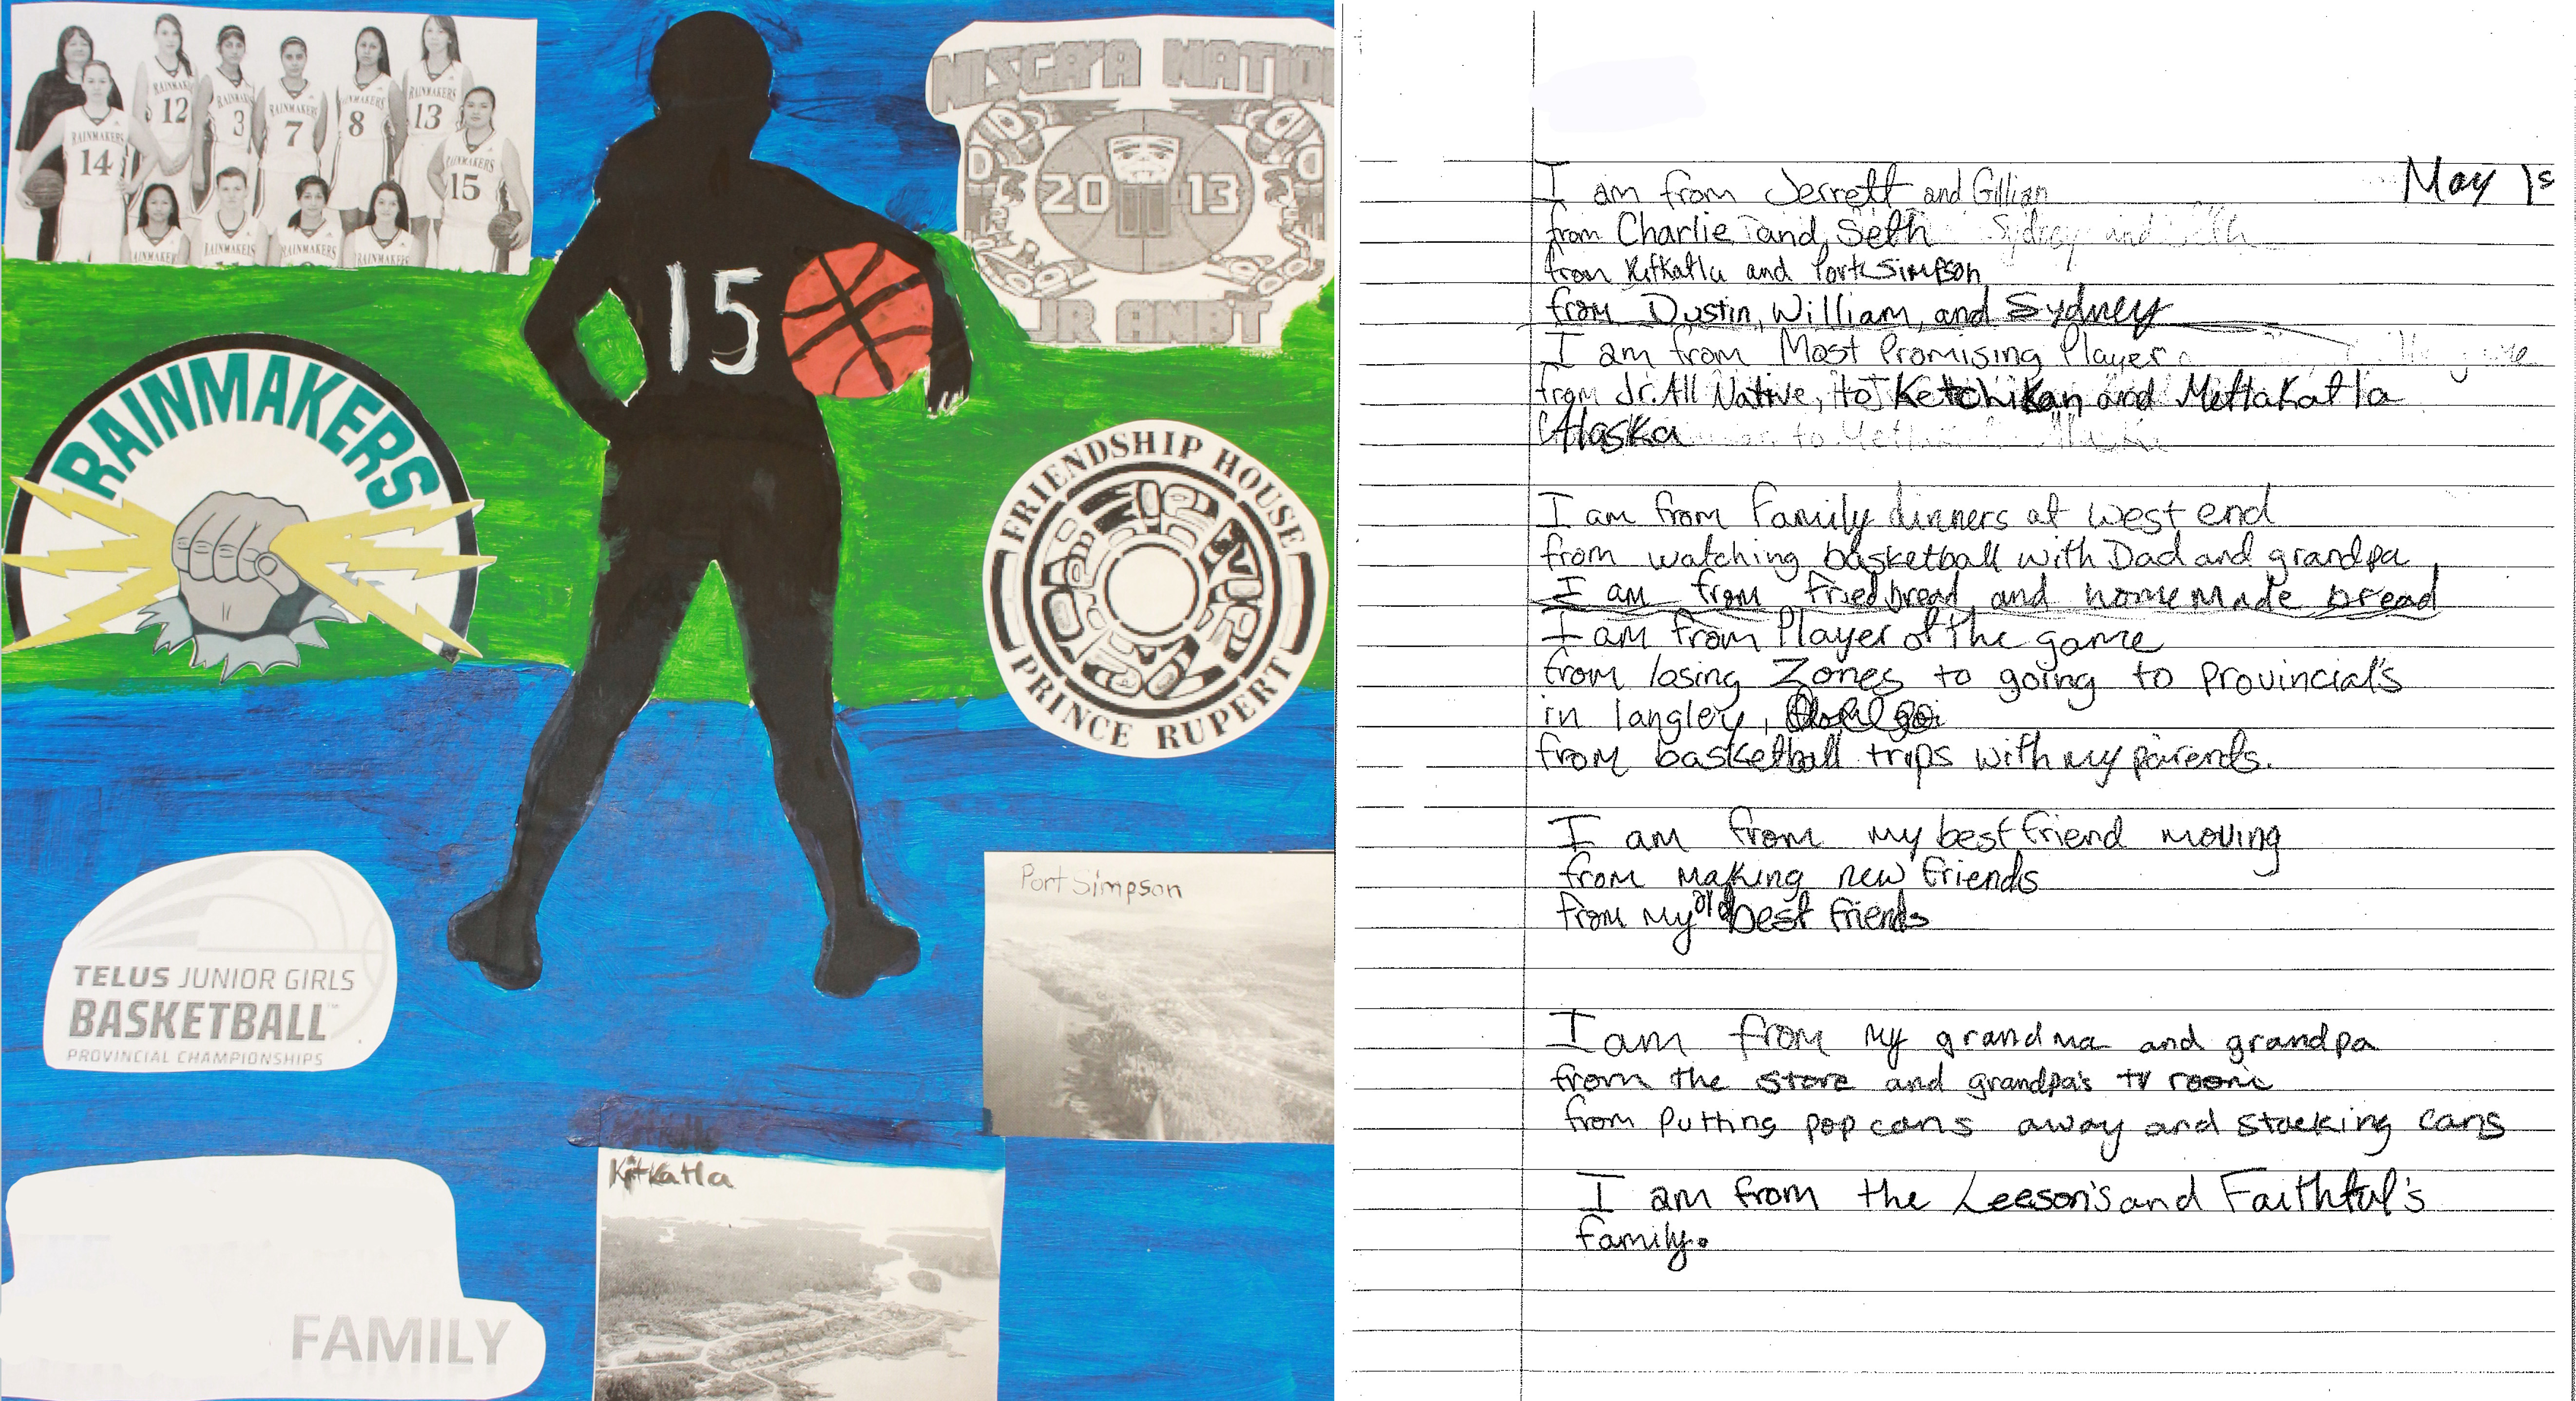 RAINMAKERS
12
RAINMAKERS
3
RAINMAKERS
7
RAINMAKERS
8
RAINMAKERS
13
RAINMAKERS
14
RAINMAKERS
15
RAINMAKERS
RAINMAKERS
RAINMAKERS
NISGA'A NATION
20 13
JR ANBT
15
RAINMAKERS
FRIENDSHIP HOUSE
PRINCE RUPERT
TELUS JUNIOR GIRLS
BASKETBALL™
PROVINCIAL CHAMPIONSHIPS
Port Simpson
Kitkatla
FAMILY
May 1s
I am from Jerrett and Gillian
from Charlie and Seth Sydney and Seth
from Kitkatla and Port Simpson
from Dustin, William, and Sydney
I am from Most Promising Player
from Jr. All Native, to Ketchikan and Metlakatla
Alaska
I am from Family dinners at west end
from watching basketball with Dad and grandpa
I am from fried bread, and home Made bread
I am from Player of the game
from losing Zones to going to Provincial's
in langley,
from basketball trips with my parents.
I am from my best friend moving
from making new friends
from my old best friends
I am from my grandma and grandpa
from the store and grandpa's tv room
from Putting pop cans away and stacking cans
I am from the Leeson's and Faithful's
family.